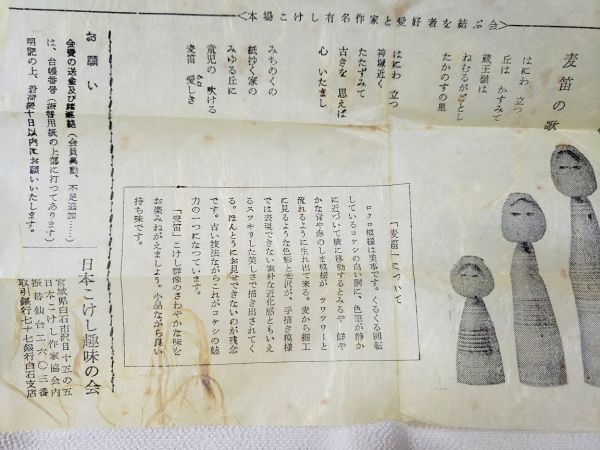 <本場こけし有名作家と愛好者を結ぶ会>
麦笛の歌
はにわ 立つ
丘は かすみて
蔵王嶺は
ねむるがごとし
たかのすの里
はにわ 立つ
神塚近く
たたずみて
古きを 思えば
心 いたまし
みちのくの
紙抄く家の
みゆる丘に
童児の 吹ける
麦笛 愛しき
かな
「麦笛」について
ロクロ模様は美事です。くるくる回転
しているコケシの白い胴に、色筆が静か
に近づいて横に移動するとみるや 鮮や
かな青や赤のしま模様が ツワツワーと
流れるように生れ出て来る。麦から細工
に見るような色彩と光沢が、手描き模様
では表現できない素朴な近代感ともいえ
るスツキリした美しさで描き出されてく
る。ほんとうにお見せできないのが残念
です。古い技法ながらこれがコケシの魅
力の一つになつています。
「麦笛」こけし群像のさわやかな味を
お楽みねがえましよう。小品ながら良い
持ち味です。
お願い
会費の送金及び諸連絡(会員異動、不足追加……)
は、台帳番号(振替用紙の上部に打つてあります)
明記の上、着荷後十日以内にお願いいたします。
日本こけし趣味の会
宮城県白石市沢目十五の五
日本こけし作家協会内
振替仙台二六〇三番
取引銀行七十七銀行白石支店